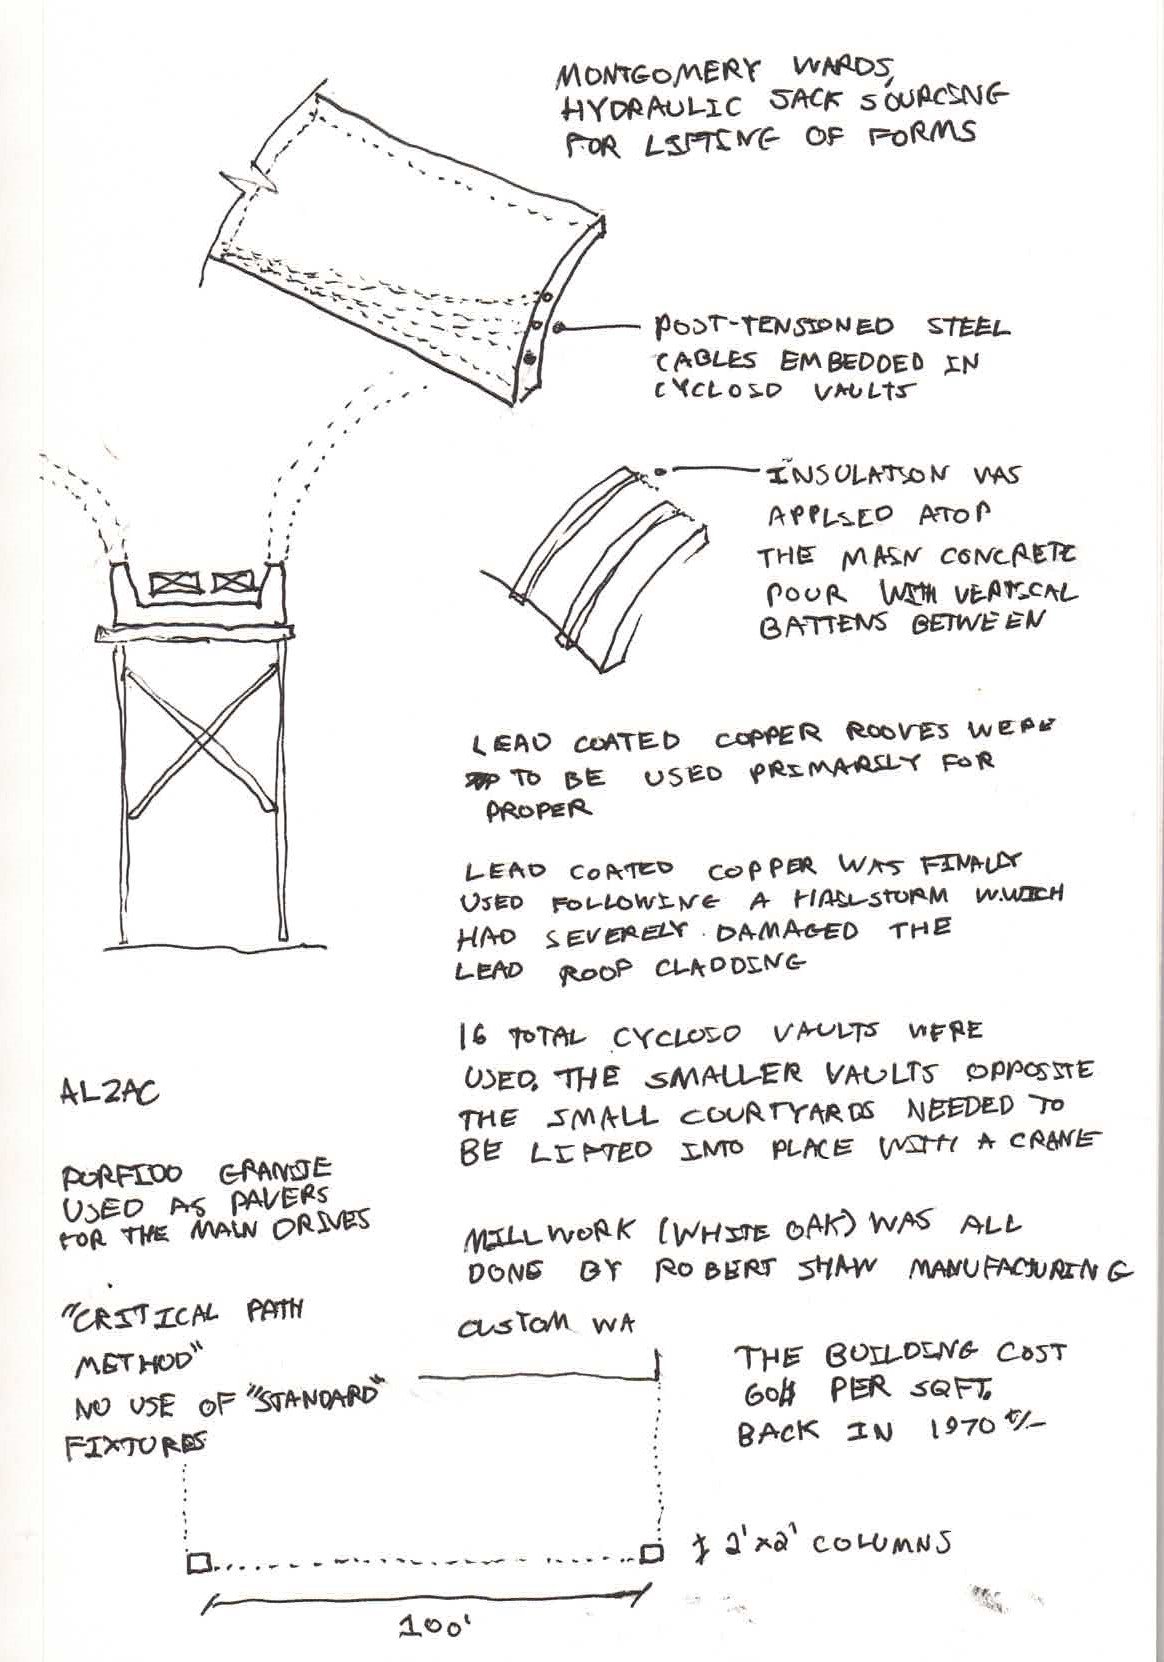 MONTGOMERY WARDS,
HYDRAULIC JACK SOURCING
FOR LIFTING OF FORMS
POST-TENSIONED STEEL
CABLES EMBEDDED IN
CYCLOID VAULTS
INSULATION WAS
APPLIED ATOP
THE MAIN CONCRETE
POUR WITH VERTICAL
BATTENS BETWEEN
LEAD COATED COPPER ROOVES WERE
TO BE USED PRIMARILY FOR
PROPER
LEAD COATED COPPER WAS FINALLY
USED FOLLOWING A HAILSTORM WWICH
HAD SEVERELY DAMAGED THE
LEAD ROOF CLADDING
16 TOTAL CYCLOID VAULTS WERE
USED. THE SMALLER VAULTS OPPOSITE
THE SMALL COURTYARDS NEEDED TO
BE LIFTED INTO PLACE WITH A CRANE
MILLWORK (WHITE OAK) WAS ALL
DONE BY ROBERT SHAW MANUFACTURING
CUSTOM WA
ALZAC
PORFIDO GRANITE
USED AS PAVERS
FOR THE MAIN DRIVES
"CRITICAL PATH
METHOD"
NO USE OF "STANDARD"
FIXTURES
THE BUILDING COST
60$ PER SQFT.
BACK IN 1970 +/-
2'x2' COLUMNS
100'